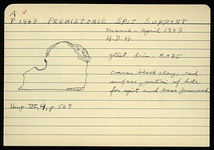 A
P 1467 PREHISTORIC SPIT SUPPORT
March - April 1937
H.D.H.
gtest. dim. 0.075
coarse black clay, red
surface, portion of hole
for spit and base preserved.
Hesp. VI, 4, p. 569